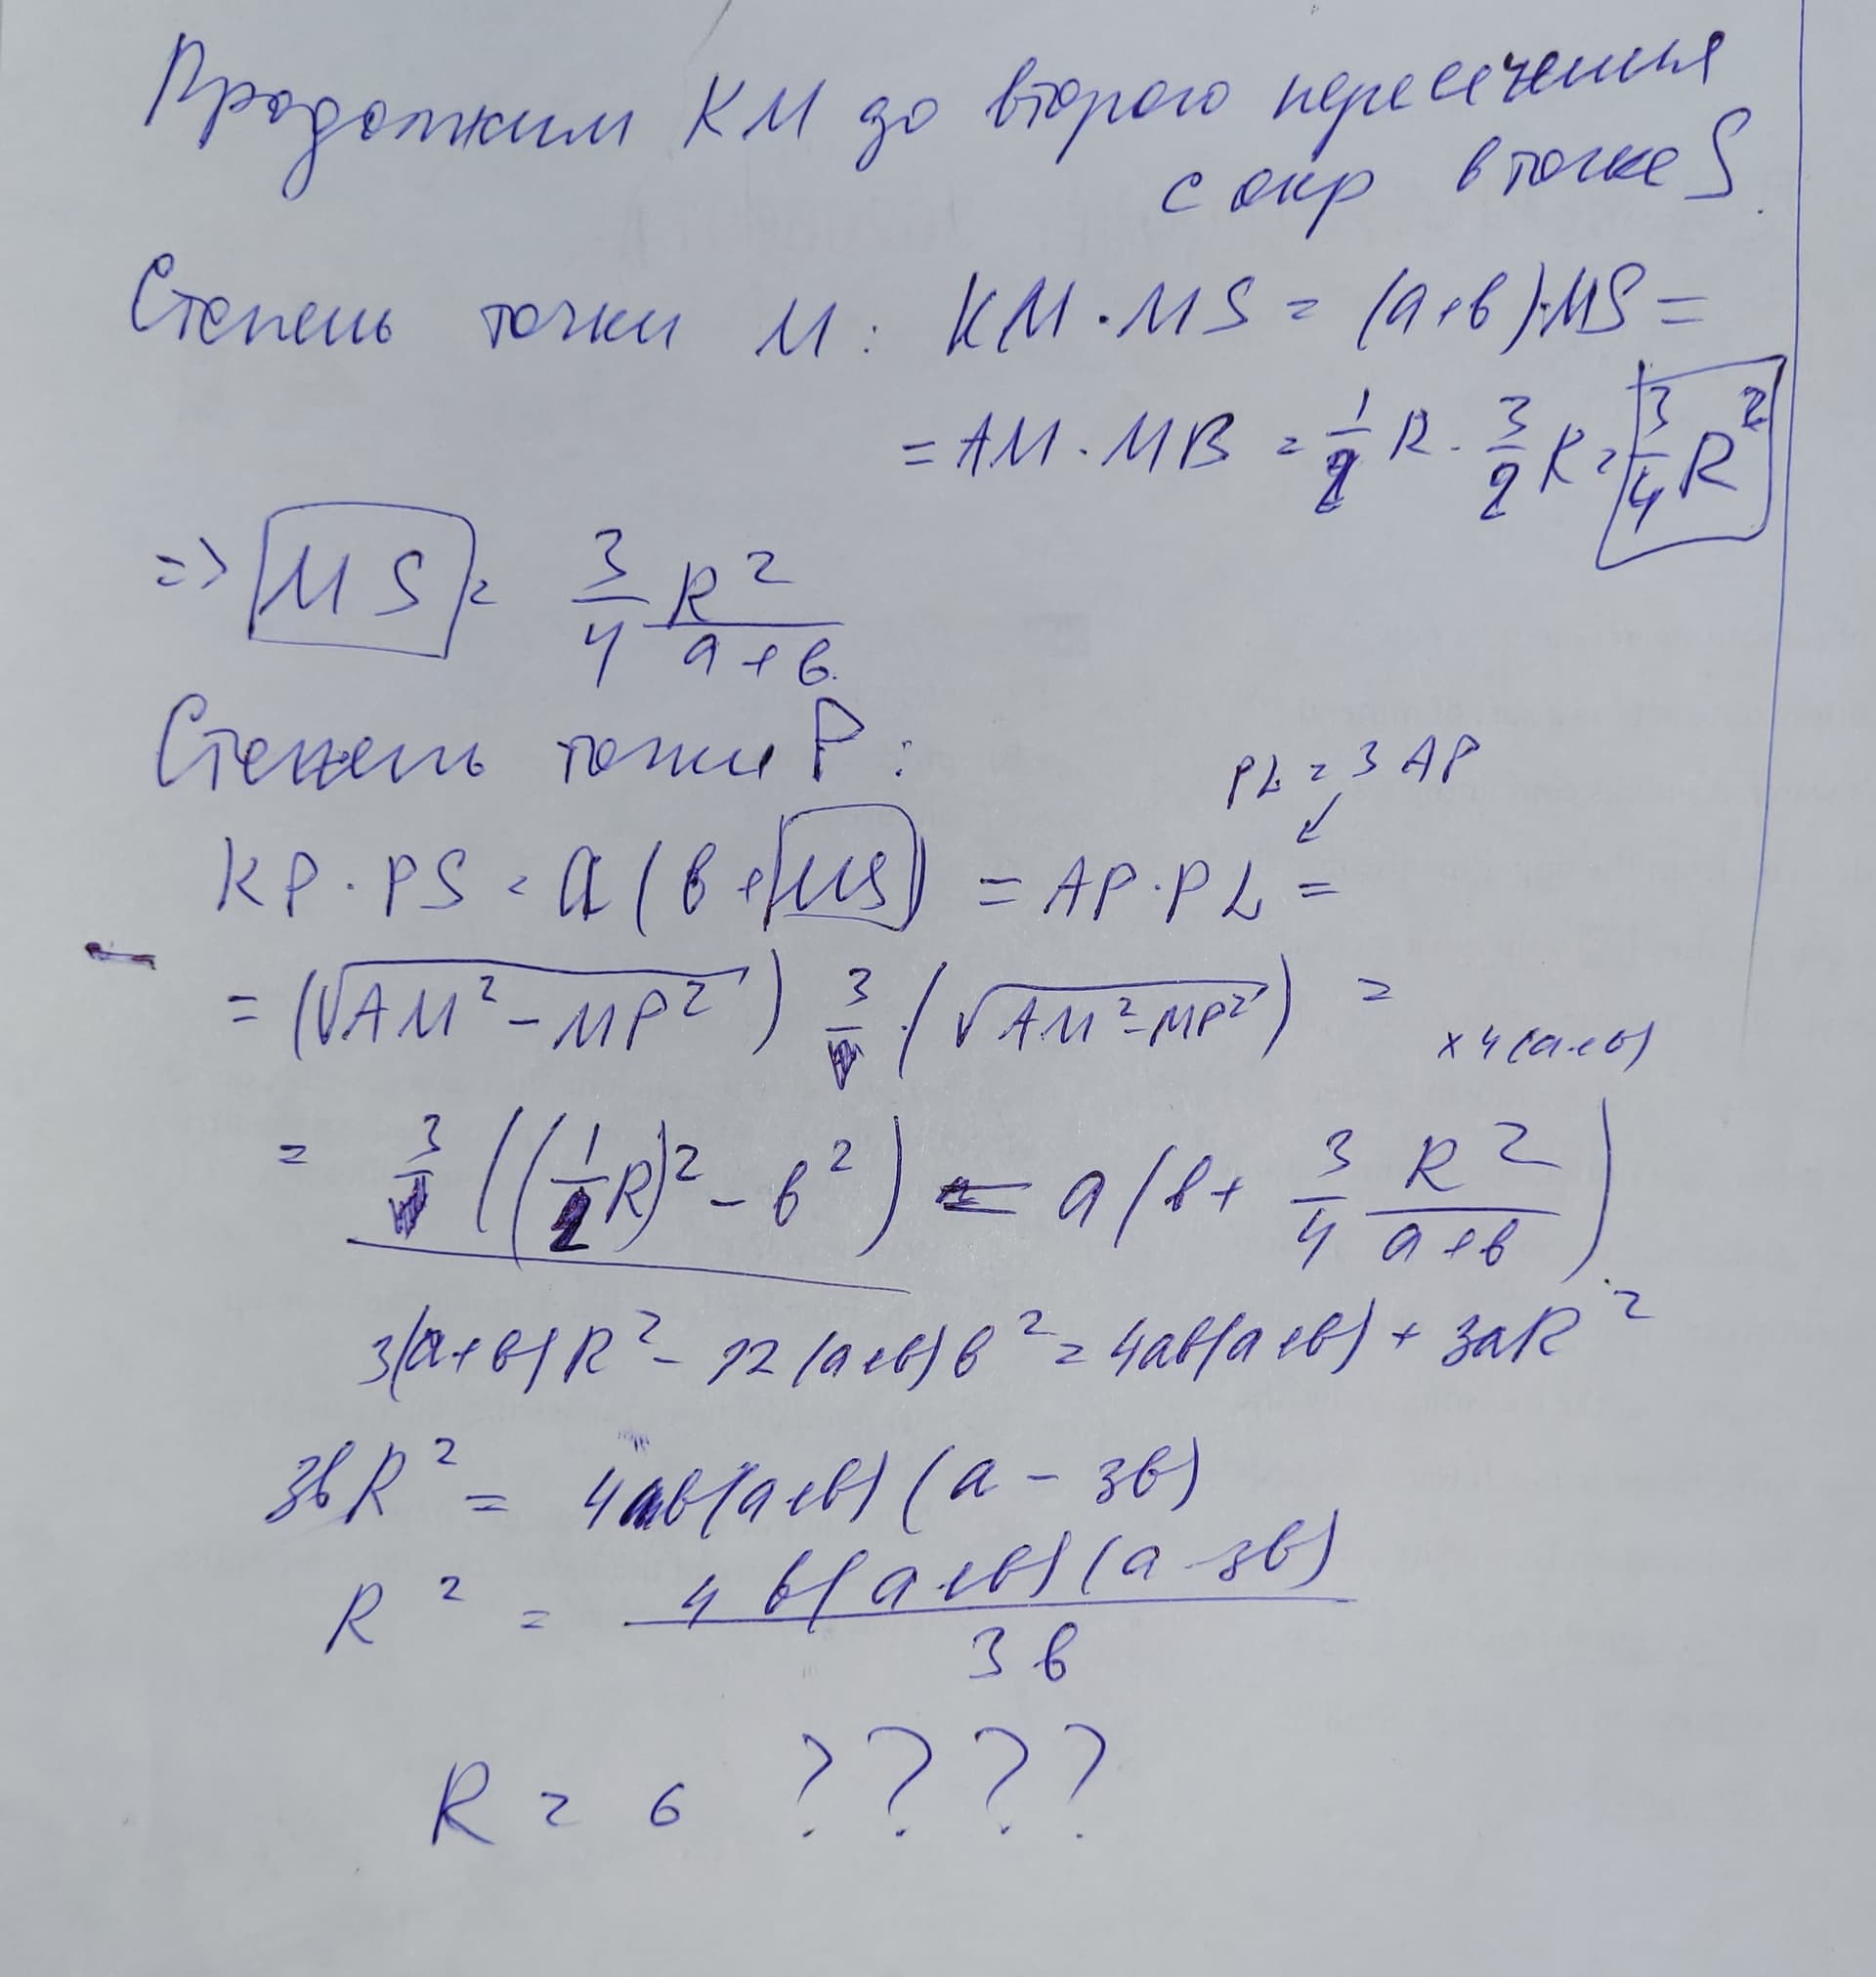 Продолжим КМ до второго пересечения
с окр в точке S.
Степень точки М: KM·MS = (a+b)·MS =
= AM·MB = 1/2 R · 3/2 R = 3/4 R²
=> MS = 3/4 R²/(a+b)
Степень точки P:
PL = 3 AP
KP·PS = a(b+MS) = AP·PL =
= (√(AM²-MP²)) 3·(√(AM²-MP²)) =
×4(a+b)
= 3((1/2 R)²-b²) = a(b + 3/4 R²/(a+b))
3(a+b)R² - 12(a+b)b² = 4ab(a+b) + 3aR²
3bR² = 4b(a+b)(a-3b)
R² = 4b(a+b)(a-3b)/3b
R = 6 ????